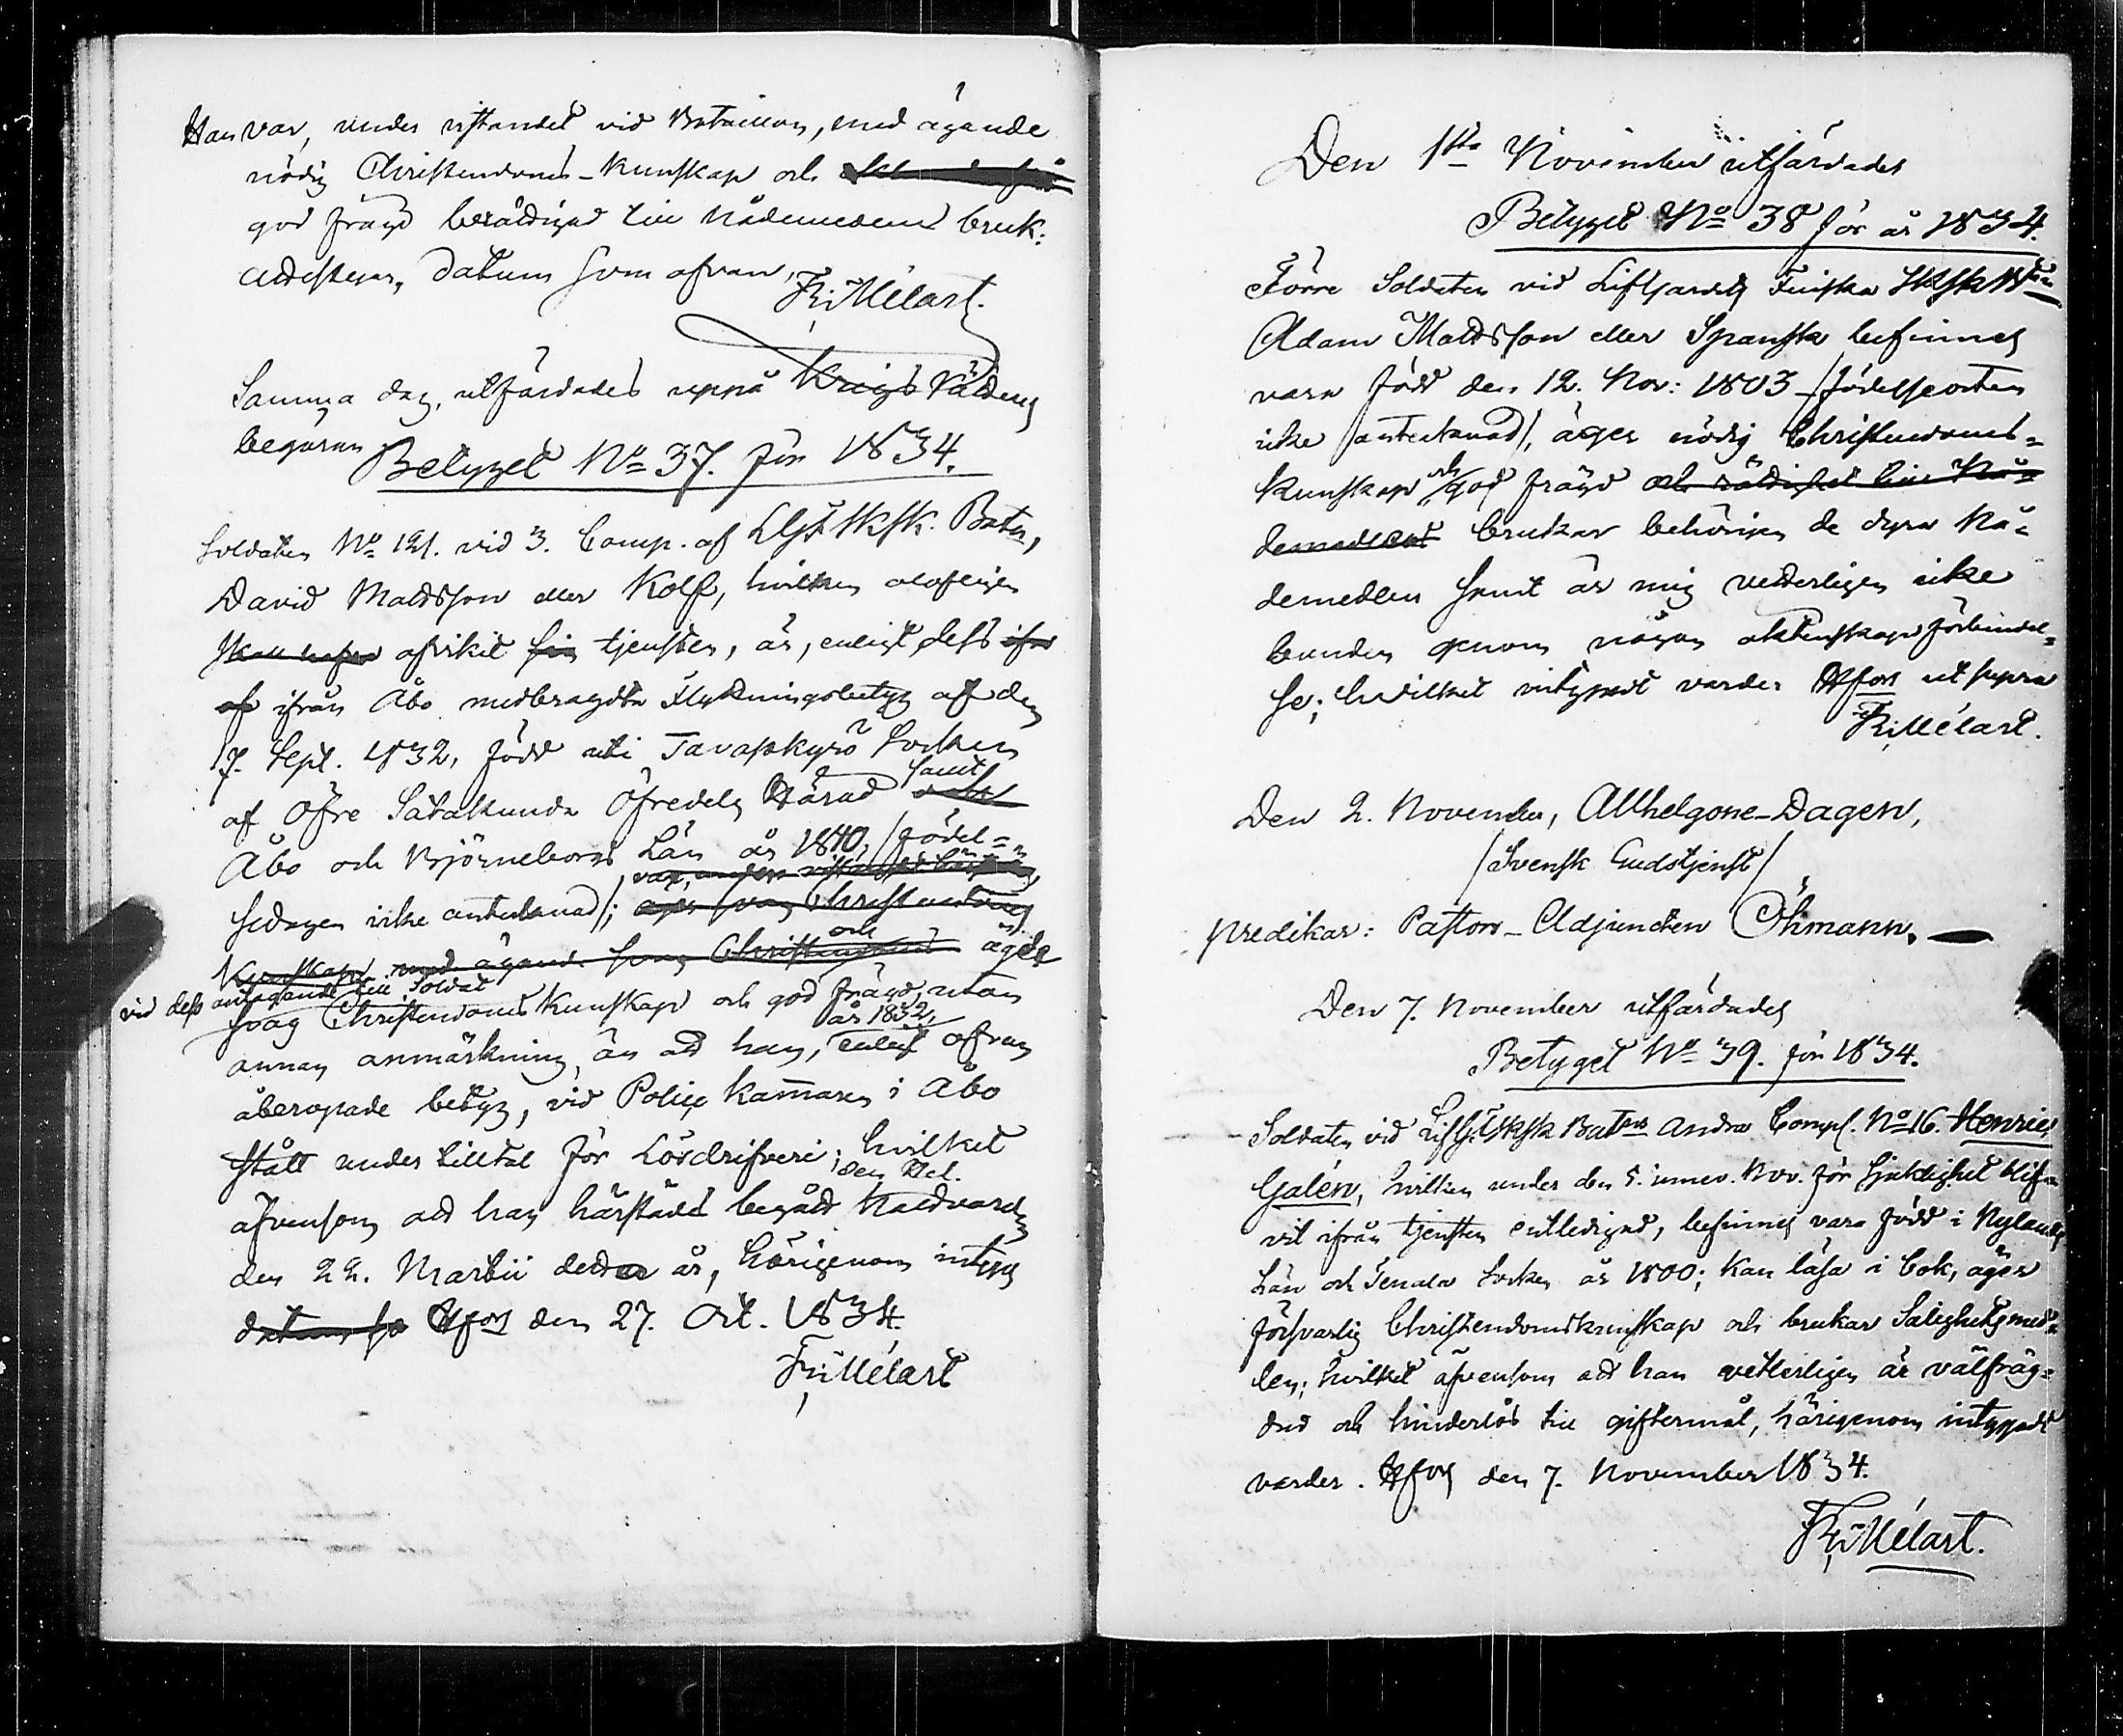 Han var, under vistandet vid Bataillon, med ägande
nödig Christendoms-kunskap och
god frägd berättigad till Nådemedens bruk:
attesteras, datum som ofvan,
Fr: Mélart.
Samma dag, utfärdades uppå Krigs Rättens
begäran
Betyget No 37. för 1834.
Soldaten No 121. vid 3. Comp. af LGFSkSk. Batn,
David Mattsson eller Kolf, hvilken olofligen
skall hafva afvikit sin tjensten, är, enligt dess ifrå
af ifrån Åbo medbragdta Flyttningsbetyg af den
17. Sept. 1832, född uti Tavastkyrö Socken
af Öfre Satakunda Öfredels Härad samt
Åbo och Björneborgs Län år 1810, /födel-
sedagen icke antecknad/; äger svag Christendoms
Kunskap med ägande svag Christendoms och ägde
vid dess antagande till Soldat
svag Christendoms kunskap och god frägd, utan
annan anmärkning, än att han, år 1832, enligt ofvan
åberopade betyg, vid Police kammaren i Åbo
stått under tilltal för Lösdrifveri; hvilket
äfvensom att han härstädes begått Nattvarden den Hel.
den 22. Martii detta år, härigenom intygas
datum so Hfors den 27. Oct. 1834.
Fr: Mélart
Den 1sta November utfärdades
Betyget No 38 för år 1834.
Förre Soldaten vid Lifgardets Finska SkSk Btn
Adam Mattsson eller Spansk befinnes
vara född den 12. Nov: 1803 /födelseorten
icke antecknad/, äger nödig Christendoms-
kunskap och god frägd och rättighet till Nå-
demedlens brukar behörigen de dyra Nå-
demedlen samt är mig vetterligen icke
bunden genom någon äktenskaps förbindel-
se; hvilket intygadt varder Hfors ut supra
Fr: Mélart.
Den 2. November, Allhelgone-Dagen,
/Svensk Gudstjenst/
predikar: Pastors-Adjuncten Öhmann.
Den 7. November utfärdades
Betyget No 39. för 1834.
Soldaten vid LifG. FSkSk Batns Andra Comp. No 16. Henric
Galén, hvilken under den 5. innev. Nov. för sjuklighet blif-
vit ifrån tjensten entledigad, befinnes vara född i Nylands
Län och Tenala Socken år 1800; kan läsa i bok, äger
försvarlig Christendomskunskap och brukar Salighetsmed-
len; hvilket äfvensom att han vetterligen är välfräg-
dad och hinderlös till giftermål, härigenom intygadt
varder. Hfors den 7. November 1834.
Fr: Mélart.